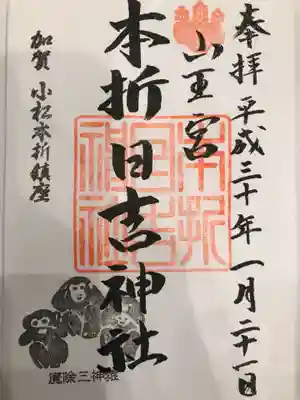 奉拝 平成三十年一月二十一日
山王宮
本折日吉神社
加賀 小松本折鎮座
魔除三神猿